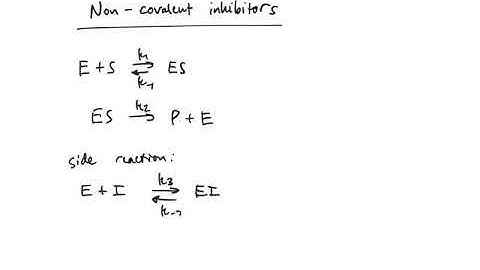 Non-covalent inhibitors
E + S ⇌ ES k₁ k₋₁
ES → P + E k₂
side reaction:
E + I ⇌ EI k₃ k₋₃